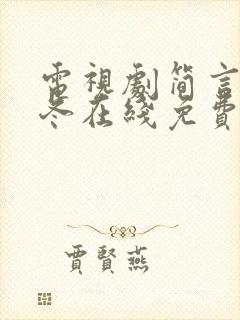 電視劇簡言
冬在綫免費
賈賢燕